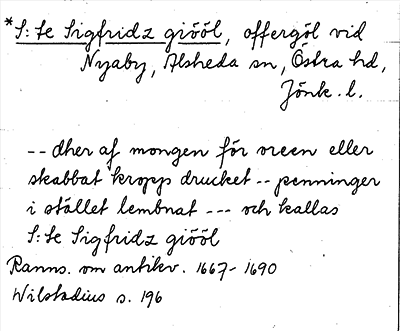 *S:te Sigfridz giööl, offergöl vid
Nyaby, Alsheda sn, Östra hd,
Jönk. l.
-- dher af mongen för vreen eller
skabbat kropp drucket -- penninger
i stället lembnat --- och kallas
S:te Sigfridz giööl
Ranns. om antikv. 1667-1690
Wilstadius s. 196